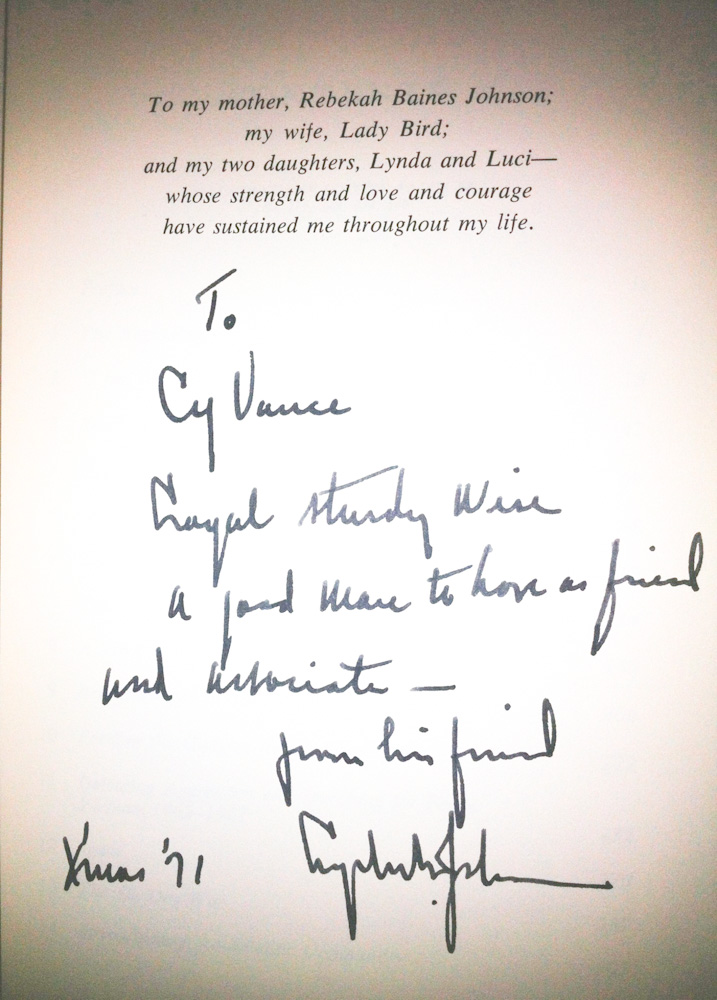 To my mother, Rebekah Baines Johnson;
my wife, Lady Bird;
and my two daughters, Lynda and Luci—
whose strength and love and courage
have sustained me throughout my life.
To
Cy Vance
Loyal sturdy Wise
a good man to have as friend
and associate —
from his friend
Xmas '71 Lyndon B. Johnson